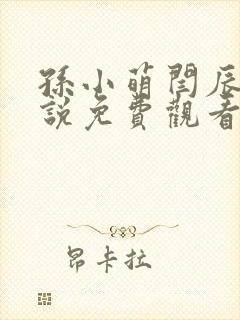 孫小萌閆辰
說免費觀看
昂卡拉